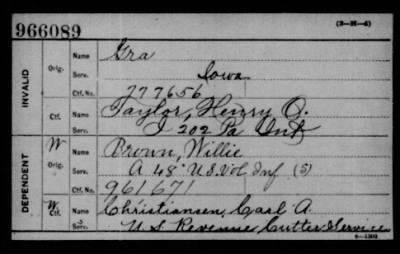 966089
(3-H-5)
INVALID
Orig.
Name
Gra
Serv.
Iowa
Ctf. No.
777656
Ctf.
Name
Taylor, Henry O.
Serv.
I 202 Pa Inf
DEPENDENT
W
Orig.
Name
Brown, Willie
Serv.
A 48" U.S. Vol. Inf (S)
Ctf. No.
961671
W
Ctf.
Name
Christiansen, Carl A.
Serv.
U.S. Revenue Cutter Service